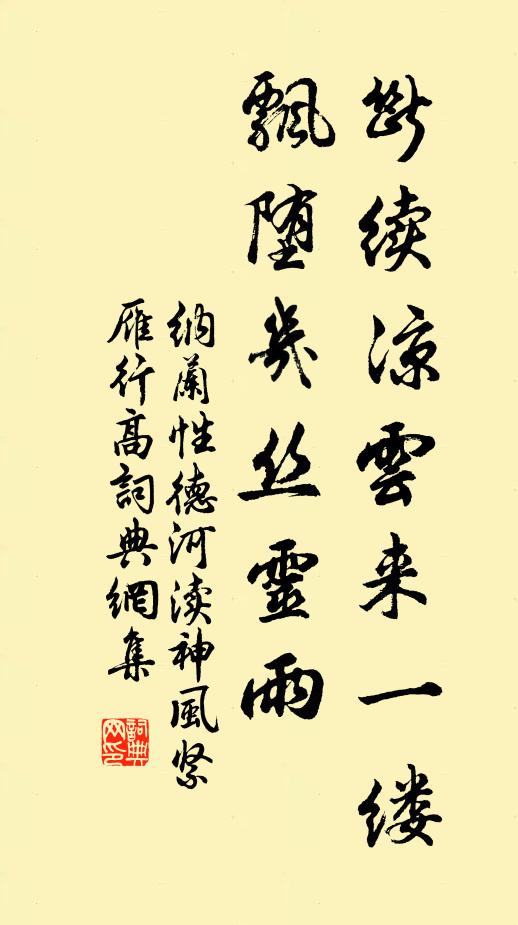 断续凉雲来一缕
飄堕幾丝靈雨
纳蘭性德河渎神風紧
雁行高詞典網集
詞典网印